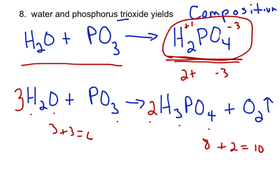 8. water and phosphorus trioxide yields
Composition
H₂O + PO₃ → H₂⁺¹PO₄⁻³
2+ -3
3H₂O + PO₃ → 2H₃PO₄ + O₂↑
3+3=6
8 + 2 = 10